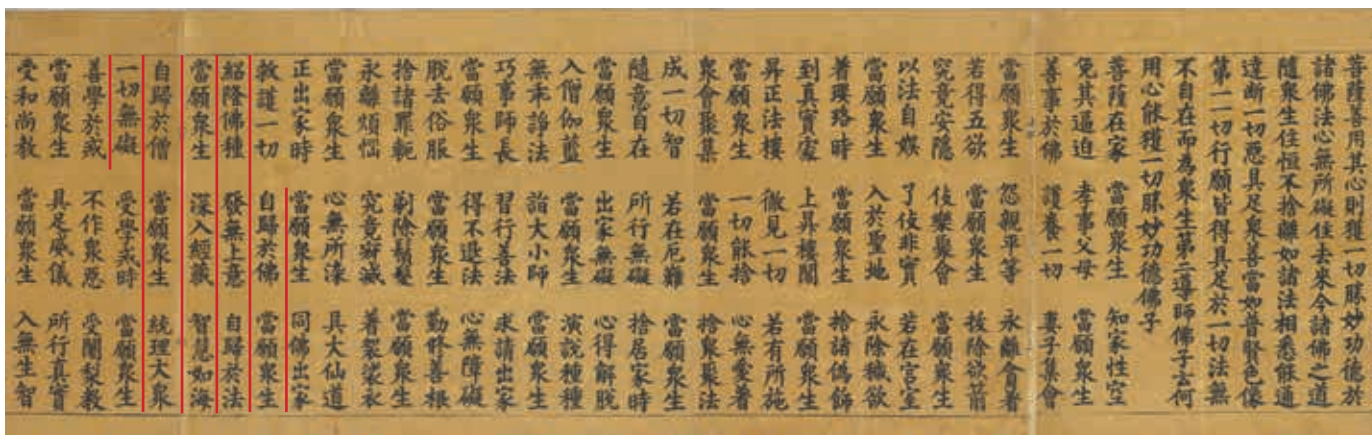 菩薩善用其心則獲一切勝妙功德於
諸佛法心無所礙住去來今諸佛之道
隨衆生住恒不捨離如諸法相悉能通
達斷一切惡具足衆善當如普賢色像
第一一切行願皆得具足於一切法無
不自在而為衆生第二導師佛子云何
用心能獲一切勝妙功德佛子
菩薩在家 當願衆生 知家性空
免其逼迫 孝事父母 當願衆生
善事於佛 護養一切 妻子集會
當願衆生 怨親平等 永離貪著
若得五欲 當願衆生 拔除欲箭
究竟安隱 伎樂聚會 當願衆生
以法自娛 了伎非實 若在宮室
當願衆生 入於聖地 永除穢欲
著瓔珞時 當願衆生 捨諸偽飾
到真實處 上昇樓閣 當願衆生
昇正法樓 徹見一切 若有所施
當願衆生 一切能捨 心無愛著
衆會聚集 當願衆生 捨衆聚法
成一切智 若在厄難 當願衆生
隨意自在 所行無礙 捨居家時
當願衆生 出家無礙 心得解脫
入僧伽藍 當願衆生 演說種種
無乖諍法 詣大小師 當願衆生
巧事師長 習行善法 求請出家
當願衆生 得不退法 心無障礙
脫去俗服 當願衆生 勤修善根
捨諸罪軛 剃除鬚髮 當願衆生
永離煩惱 究竟寂滅 著袈裟衣
當願衆生 心無所染 具大仙道
正出家時 當願衆生 同佛出家
救護一切 自歸於佛 當願衆生
紹隆佛種 發無上意 自歸於法
當願衆生 深入經藏 智慧如海
自歸於僧 當願衆生 統理大衆
一切無礙 受學戒時 當願衆生
善學於戒 不作衆惡 受闍梨教
當願衆生 具足威儀 所行真實
受和尚教 當願衆生 入無生智